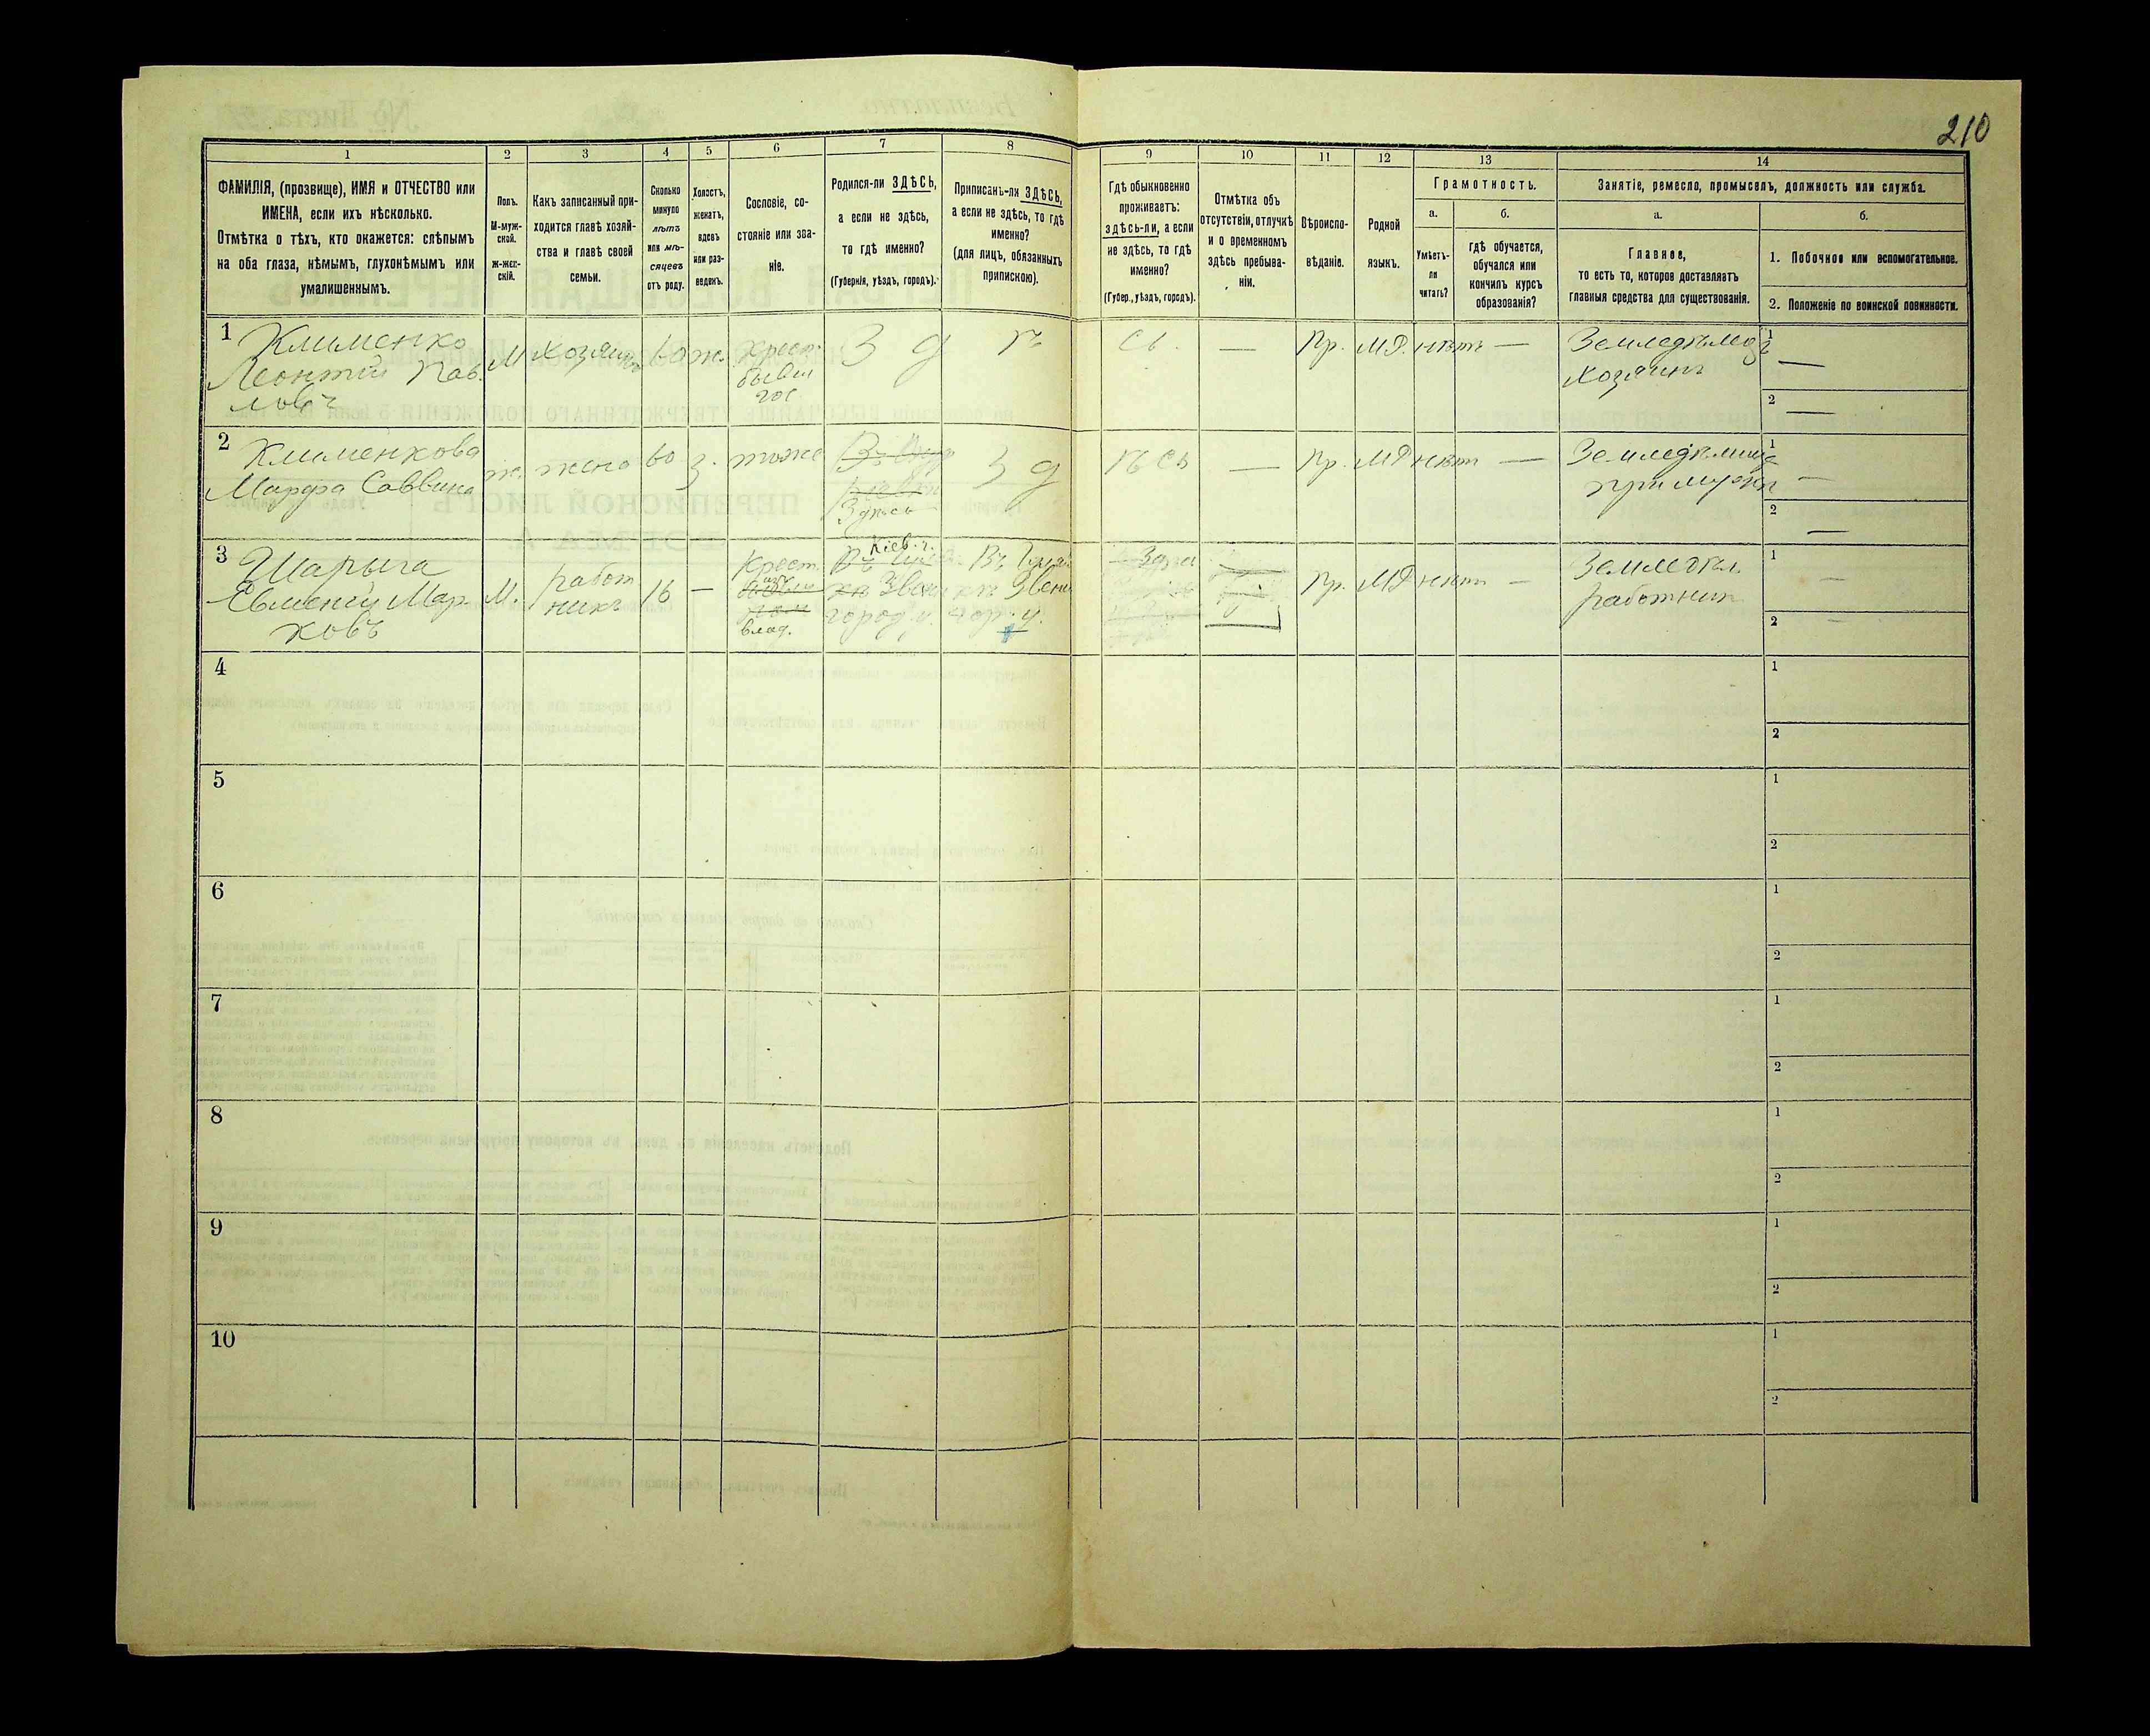 210
1 2 3 4 5 6 7 8 9 10 11 12 13 14
ФАМИЛІЯ, (прозвище), ИМЯ и ОТЧЕСТВО или
ИМЕНА, если ихъ нѣсколько.
Отмѣтка о тѣхъ, кто окажется: слѣпымъ
на оба глаза, нѣмымъ, глухонѣмымъ или
умалишеннымъ.
Полъ.
М-муж-
ской.
ж-жен-
скій.
Какъ записанный при-
ходится главѣ хозяй-
ства и главѣ своей
семьи.
Сколько
минуло
лѣтъ
или мѣ-
сяцевъ
отъ роду.
Холостъ,
женатъ,
вдовъ
или раз-
веденъ.
Сословіе, со-
стояніе или зва-
ніе.
Родился-ли ЗДѢСЬ,
а если не здѣсь,
то гдѣ именно?
(Губернія, уѣздъ, городъ).
Приписанъ-ли ЗДѢСЬ,
а если не здѣсь, то гдѣ
именно?
(для лицъ, обязанныхъ
припискою).
Гдѣ обыкновенно
проживаетъ:
здѣсь-ли, а если
не здѣсь, то гдѣ
именно?
(Губер., уѣздъ, городъ).
Отмѣтка объ
отсутствіи, отлучкѣ
и о временномъ
здѣсь пребыва-
ніи.
Вѣроиспо-
вѣданіе.
Родной
языкъ.
Грамотность.
а.
Умѣетъ-
ли
читать?
б.
гдѣ обучается,
обучался или
кончилъ курсъ
образованія?
Занятіе, ремесло, промыселъ, должность или служба.
а.
Главное,
то есть то, которое доставляетъ
главныя средства для существованія.
б.
1. Побочное или вспомогательное.
2. Положеніе по воинской повинности.
1 Клименко
Леонтій Пав-
ловъ
М
хозяинъ
60
ж.
Крест.
бывш
гос
З д
ѣ
сь.
—
Пр.
М Р.
нѣтъ
—
Земледѣлец
хозяинъ
1
—
2
—
2 Клименкова
Марфа Саввина
ж.
жена
60
з.
тоже
Здѣсь
З д
ѣ сь
—
Пр.
М Р
нѣтъ
—
при мужѣ
1
—
2
—
3 Шарыга
Евменій Мар-
ковъ
М.
работ
никъ
16
—
Крест.
влад.
Кіев. г.
Звени
город. у.
Въ
Звени
гор. у.
Пр.
М Р
нѣтъ
—
Земледѣл.
работник
1
—
2
—
4
1
2
5
1
2
6
1
2
7
1
2
8
1
2
9
1
2
10
1
2